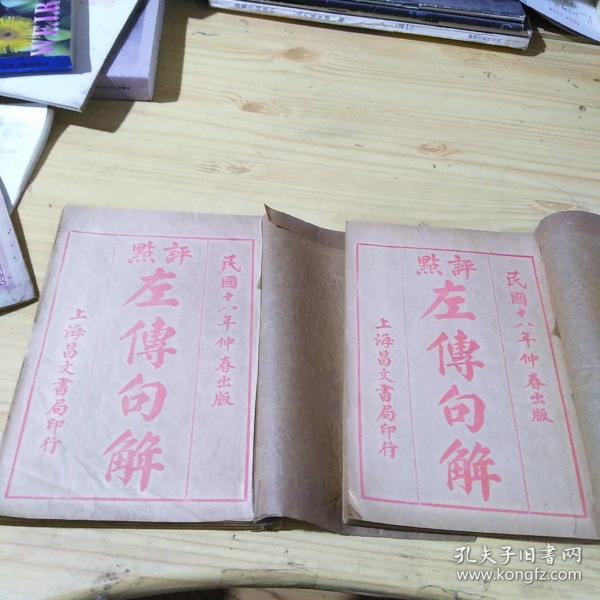 民國十八年仲春出版
評點
左傳句解
上海昌文書局印行
民國十八年仲春出版
評點
左傳句解
上海昌文書局印行
WEAR
孔夫子旧书网
www.kongfz.com